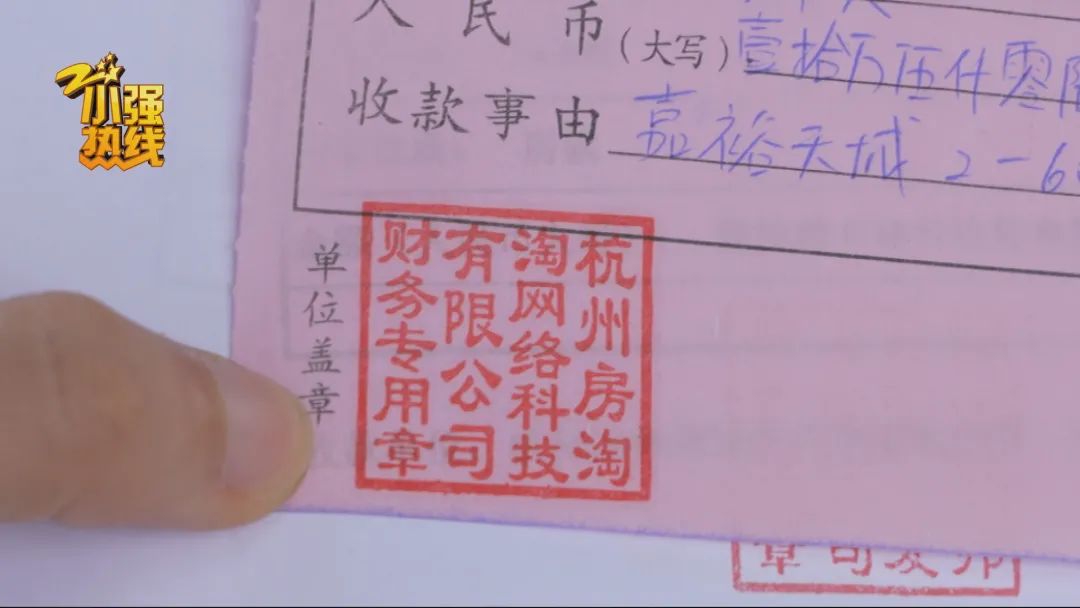 小强
热线
人民币(大写)壹拾万伍仟零陆
收款事由 嘉裕天城 2-6
单位盖章
杭州房淘
淘网络科技
有限公司
财务专用章
章司发